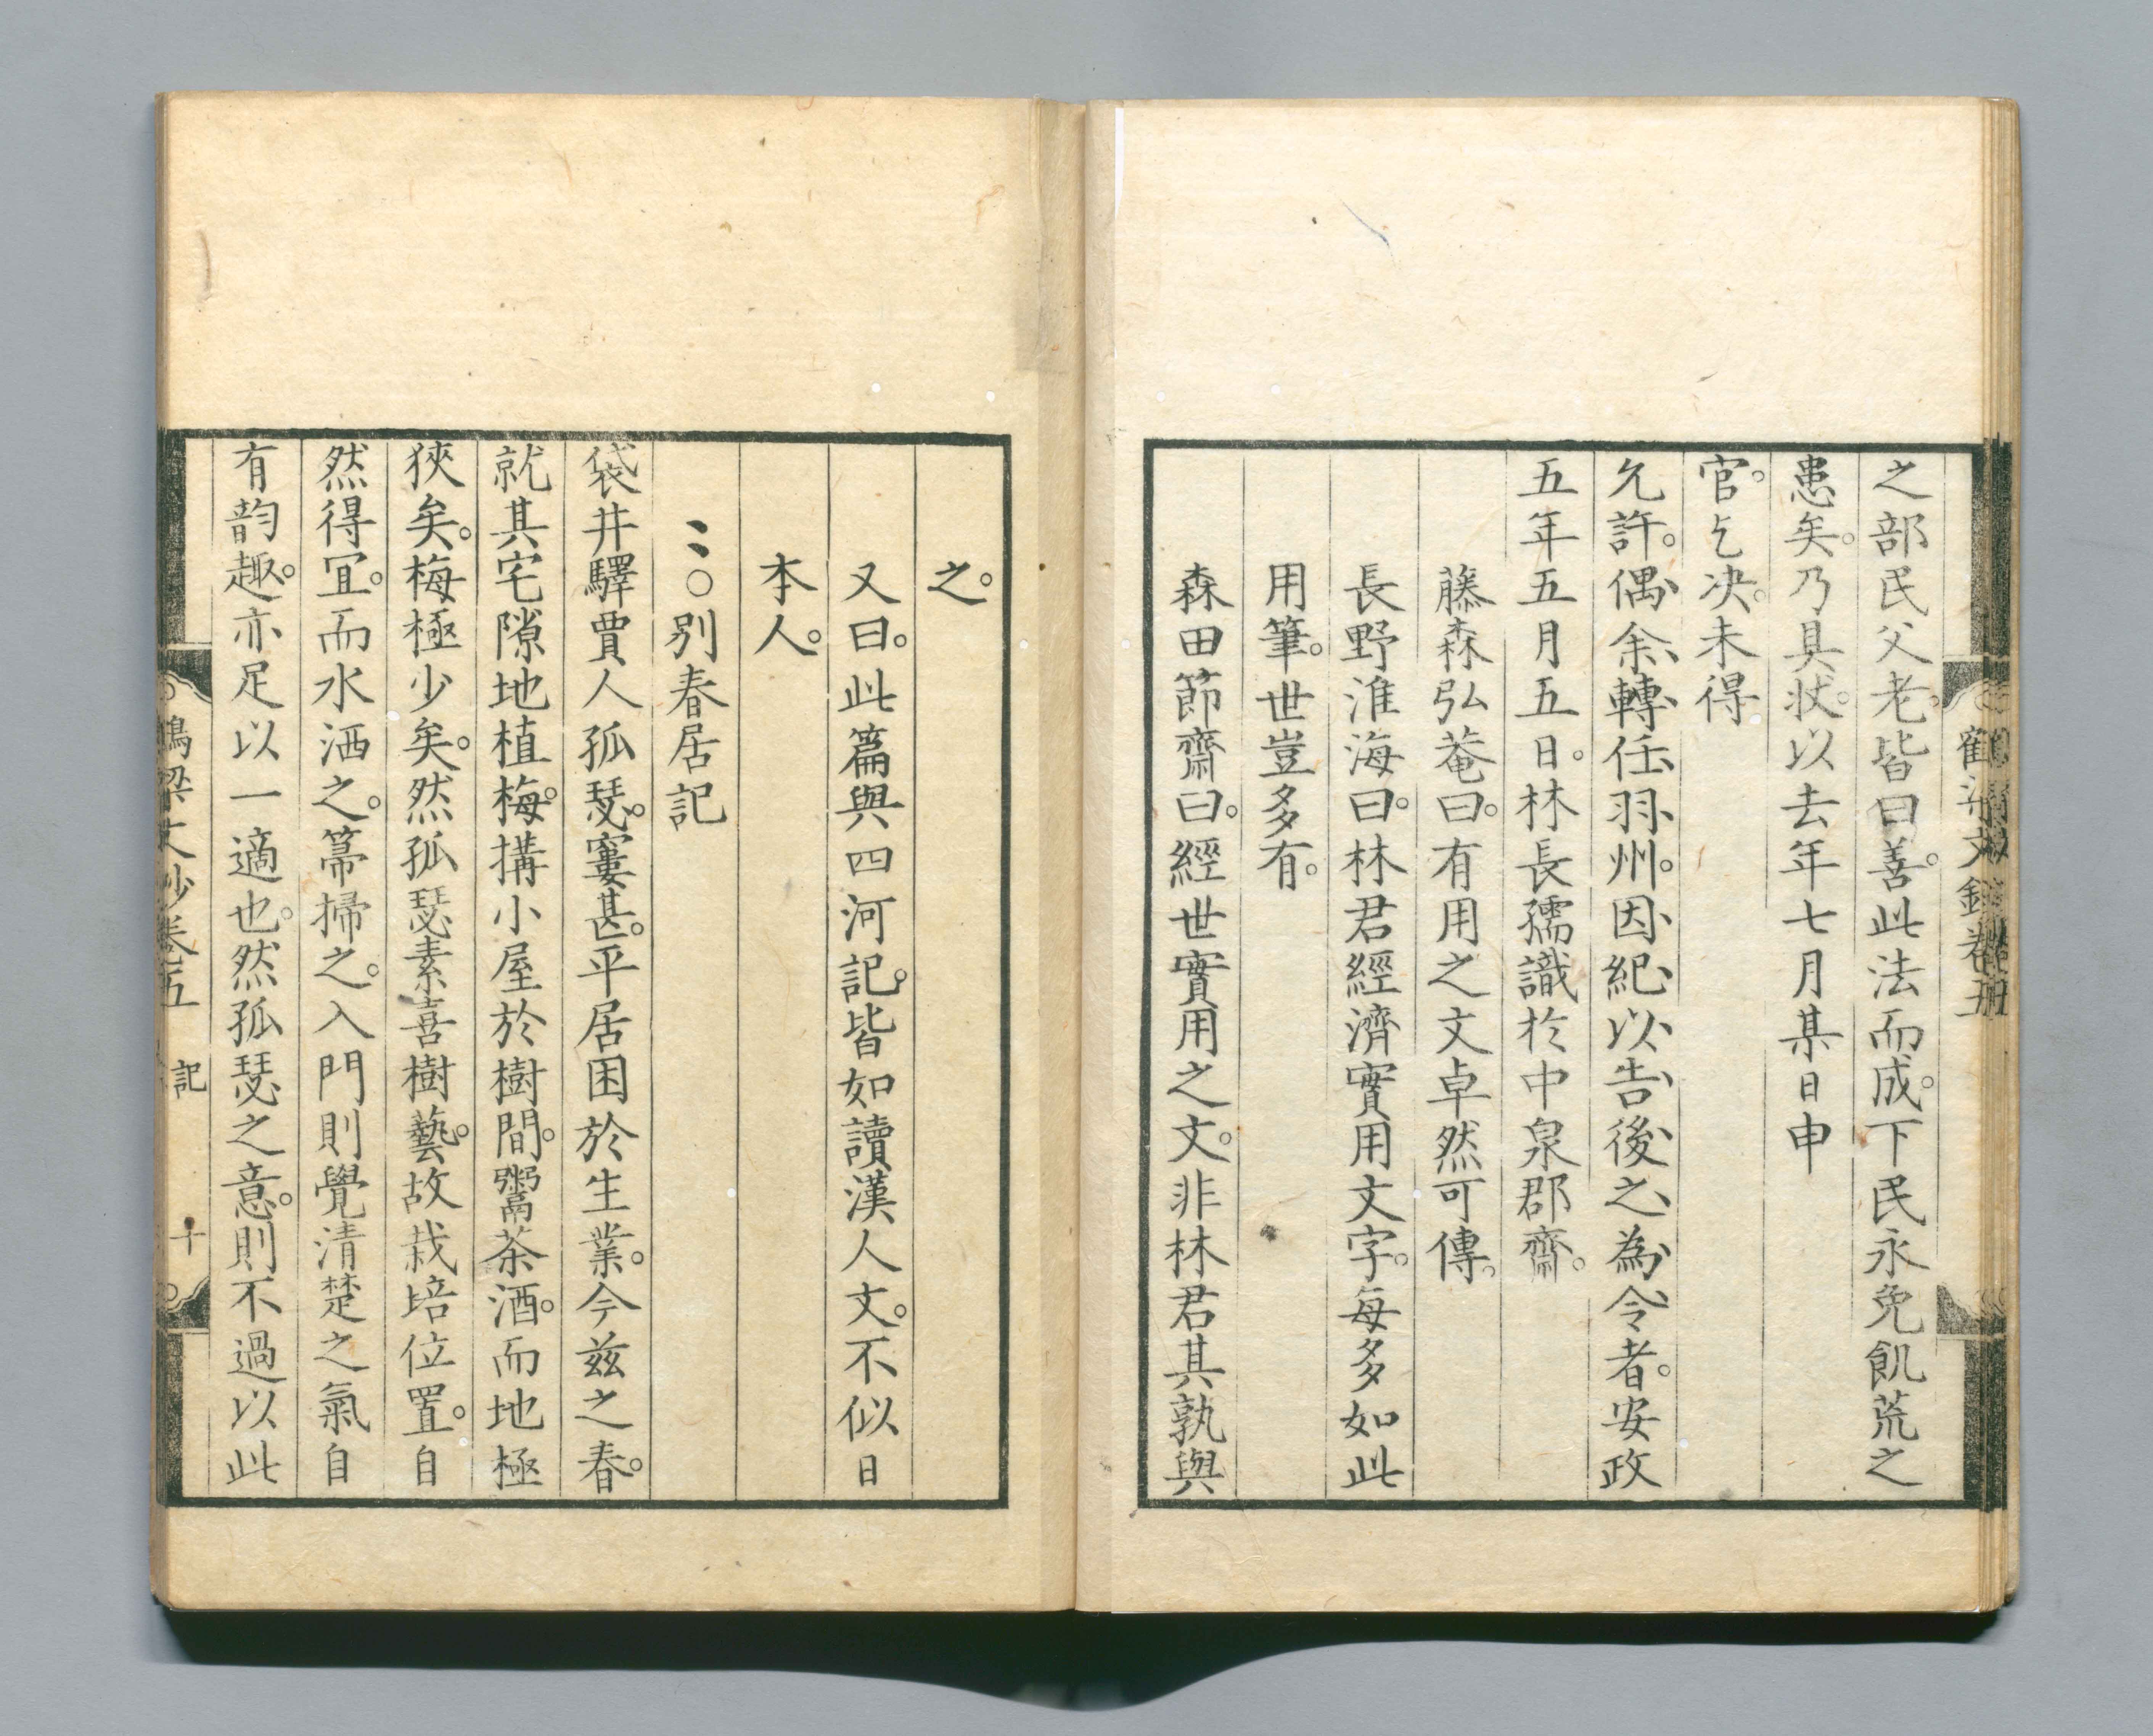 之部民父老。皆曰善。此法而成。下民永免飢荒之
患矣。乃具狀。以去年七月某日申
官。乞决。未得
允許。偶余轉任羽州。因紀以告後之為令者。安政
五年五月五日。林長孺識於中泉郡齋。
藤森弘菴曰。有用之文卓然可傳。
長野淮海曰。林君經濟實用文字。每多如此
用筆。世豈多有。
森田節齋曰。經世實用之文。非林君其孰與
之。
又曰。此篇與四河記。皆如讀漢人文。不似日
本人。
〻○別春居記
袋井驛賈人孤瑟。窶甚。平居困於生業。今兹之春。
就其宅隙地植梅。搆小屋於樹間。鬻茶酒。而地極
狹矣。梅極少矣。然孤瑟素喜樹藝。故栽培位置。自
然得冝。而水洒之。箒掃之。入門則覺清楚之氣自
有韵趣。亦足以一適也。然孤瑟之意。則不過以此
鶴梁文鈔卷五 記 十